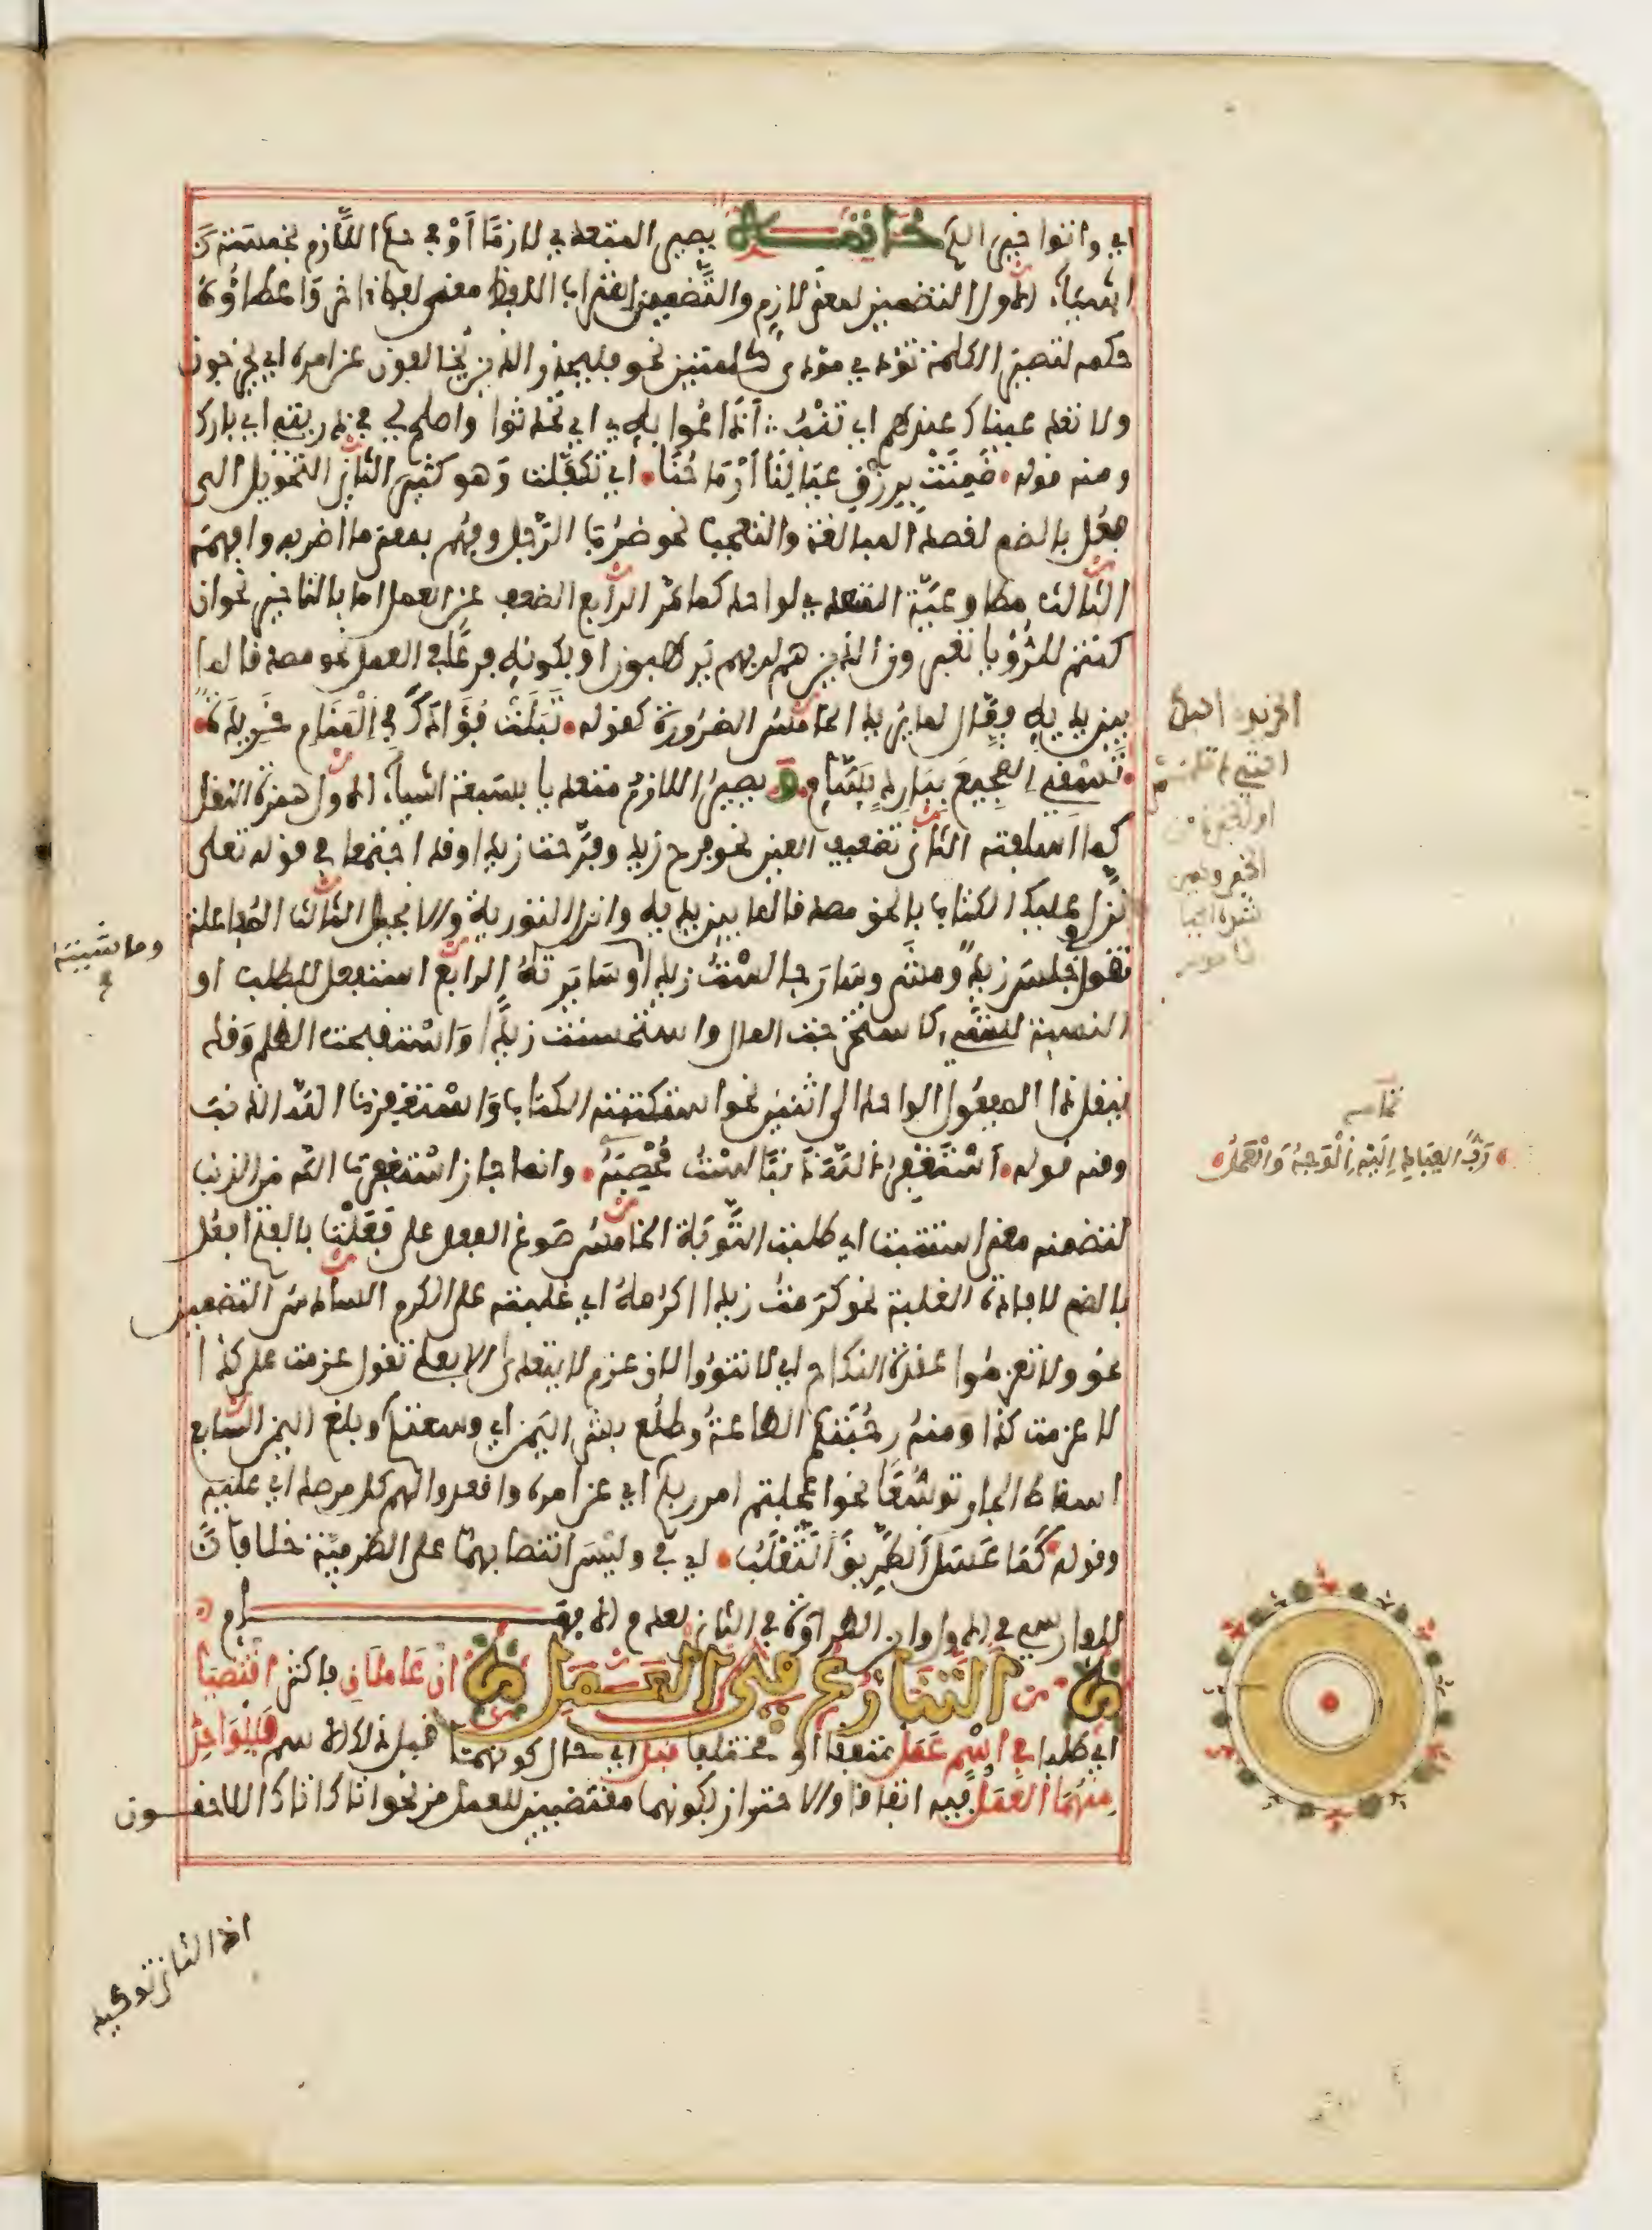 اي وانتوا خيرا الخ خاتمة يصير المتعدي لازما أو في حكم اللازم بخمسة
أشياء الأول التضمين لمعنى لازم والتضمين اشراب اللفظ معنى لفظ ءاخر وإعطاؤه
حكمه لتصير الكلمة تؤدي مؤدى كلمتين نحو فليحذر الذين يخالفون عن امره اي يخرجون
ولا تعد عيناك عنهم اي تنب أذاعوا به اي تحدثوا واصلح لي في ذريتي اي بارك
ومنه قوله ضمنت برزق عيالنا أرماحنا أي تكفلت وهو كثير الثاني التحويل الى
فعل بالضم لقصد المبالغة والتعجب نحو ضرب الرجل وفهم بمعنى ما اضربه وافهمه
الثالث مطاوعة المتعدي لواحد كما مر الرابع الضعف عن العمل اما بالتاخير نحو ان
كنتم للرءيا تعبرون الذين هم لربهم يرهبون او بكونه فرعا في العمل نحو مصدقا لما
بين يديه فعال لما يريد الخامس الضرورة كقوله تبلت فؤادك في المنام خريدة
تسقي الضجيع ببارد بسام ويصير اللازم متعديا بسبعة اشياء الأول همزة النقل
كما اسلفته الثاني تضعيف العين نحو فرح زيد وفرحت زيدا وقد اجتمعا في قوله تعلى
نزل عليك الكتاب بالحق مصدقا لما بين يديه وانزل التورية والانجيل الثالث المفاعلة
تقول جلس زيد ومشى وسار جالست زيدا وسايرته الرابع استفعل للطلب او
النسبة للشيء كاستخرجت المال واستحسنت زيدا واستقبحت الظلم وقد
ينقل ذا المفعول الواحد الى اثنين نحو استكتبته الكتاب واستغفرت الله الذنب
ومنه قوله أستغفر الله ذنبا لست محصيه وانما جاز استغفرت الله من الذنب
لتضمنه معنى استتبت اي طلبت التوبة الخامس صوغ الفعل على فعلت بالفتح افعل
بالضم لافادة الغلبة نحو كرمت زيدا اكرمه اي غلبته على الكرم السادس التضمين
نحو ولا تعزموا عقدة النكاح اي لا تنووا لان عزم لا يتعدى الا بعلى تقول عزمت على كذا
لا عزمت كذا ومنه رحبتكم الطاعة وطلع بشر اليمن اي وسعتكم وبلغ اليمن السابع
اسقاط الجار توسعا نحو اعجلتم امر ربكم أي عن امره واقعدوا لهم كل مرصد اي عليه
وقوله كما عسل الطريق الثعلب اي في وليس انتصابهما على الظرفية خلافا
للفارسي في الاول وابن الطراوة في الثاني لعدم الابهـــام
التنازع في العمل ان عاملان فاكثر اقتضيا
اي طلبا في اسم عمل متفقا او مختلفا قبل اي حال كونهما قبل ذلك الاسم فللواحد
منهما العمل فيه اتفاقا والاحتراز بكونهما مقتضيين للعمل من نحو اتاك اتاك اللاحقـــون
وماشيته
تمامه
رب العباد اليه الوجه والعمل
اذ الثاني توكيد